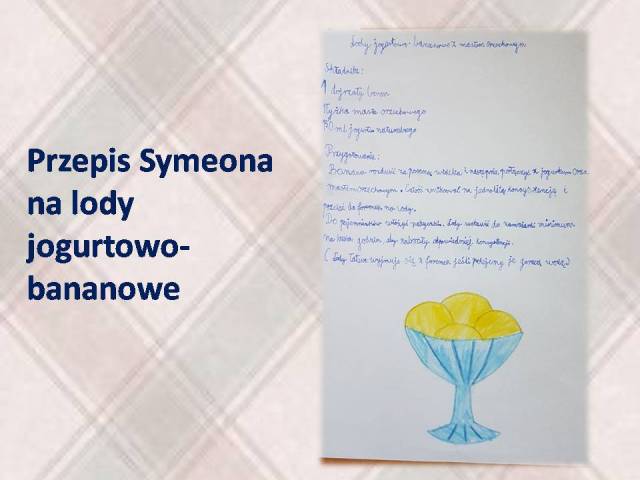 Przepis Symeona
na lody
jogurtowo-
bananowe
Lody jogurtowo-bananowe z masłem orzechowym
Składniki:
1 dojrzały banan
łyżka masła orzechowego
ml jogurtu naturalnego
Przygotowanie:
Banana rozbić na pomocą widelca i następnie połączyć z jogurtem oraz
masłem orzechowym. Całość na jednolitą konsystencję i
przelać do foremek na lody.
Do pojemników włożyć patyczki. Lody wstawić do zamrażarki minimum
na kilka godzin aby nabrały odpowiedniej konsystencji.
(Lody łatwo wyjmuje się z foremek jeśli polejemy je gorącą wodą)